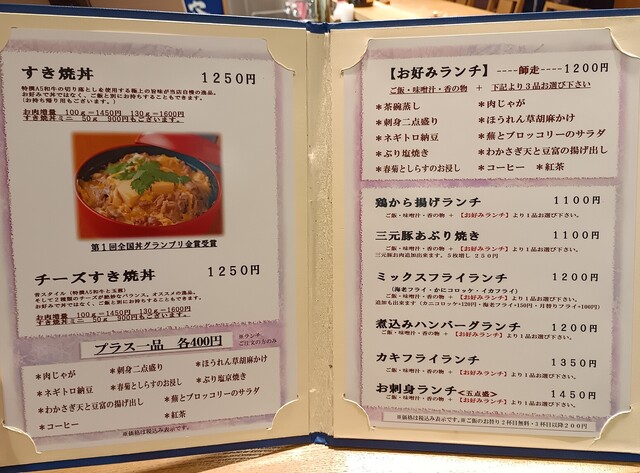 すき焼丼 1250円
特撰A5和牛の切り落としを使用する極上の旨味が当店自慢の逸品。
お好みで丼ではなく、ご飯と別にお持ちすることもできます。
(お持ち帰り用もございます。)
お肉増量 100g=1450円 130g=1600円
すき焼丼ミニ 50g 900円もございます。
第1回全国丼グランプリ金賞受賞
チーズすき焼丼 1250円
お好みで丼ではなく、ご飯と別にお持ちすることもできます。
お肉増量 100g=1450円 130g=1600円
すき焼丼ミニ 50g 900円もございます。
プラス一品 各400円
※ランチ
ご注文の方のみ
*肉じゃが *刺身二点盛り *ほうれん草胡麻かけ
*ネギトロ納豆 *春菊としらすのお浸し *ぶり塩焼き
*わかさぎ天と豆富の揚げ出し *蕪とブロッコリーのサラダ
*コーヒー *紅茶
※価格は税込み表示です。
【お好みランチ】----師走----1200円
ご飯・味噌汁・香の物 + 下記より3品お選び下さい
*茶碗蒸し *肉じゃが
*刺身二点盛り *ほうれん草胡麻かけ
*ネギトロ納豆 *蕪とブロッコリーのサラダ
*ぶり塩焼き *わかさぎ天と豆富の揚げ出し
*春菊としらすのお浸し *コーヒー *紅茶
鶏から揚げランチ 1100円
ご飯・味噌汁・香の物 + 【お好みランチ】より1品お選び下さい。
三元豚あぶり焼き 1100円
ご飯・味噌汁・香の物 + 【お好みランチ】より1品お選び下さい。
三元豚お肉追加出来ます。5枚増し 250円
ミックスフライランチ 1200円
(海老フライ・かにコロッケ・イカフライ)
ご飯・味噌汁・香の物 + 【お好みランチ】より1品お選び下さい。
煮込みハンバーグランチ 1200円
ご飯・味噌汁・香の物 + 【お好みランチ】より1品お選び下さい。
カキフライランチ 1350円
ご飯・味噌汁・香の物 + 【お好みランチ】より1品お選び下さい。
お刺身ランチ<五点盛> 1450円
ご飯・味噌汁・香の物 + 【お好みランチ】より1品お選び下さい。
※価格は税込み表示です。※ご飯のお替り2杯目無料・3杯目以降200円